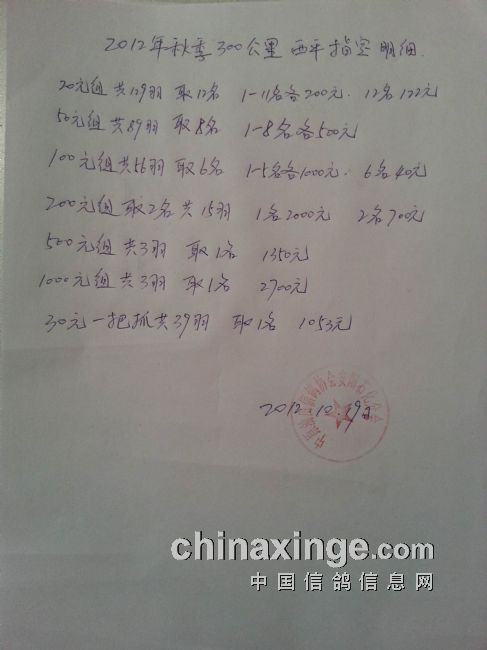 2012年秋季300公里 西平指定明细
20元组共129羽 取12名 1-11名各200元. 12名122元
50元组共89羽 取8名 1-8名各500元
100元组共56羽 取6名 1-5名各1000元. 6名40元
200元组取2名共15羽 1名2000元 2名700元
500元组共3羽 取1名 1350元
1000元组共3羽 取1名 2700元
30元一把抓共39羽 取1名 1053元
2012.10.19日
chinaxinge.com
中国信鸽信息网